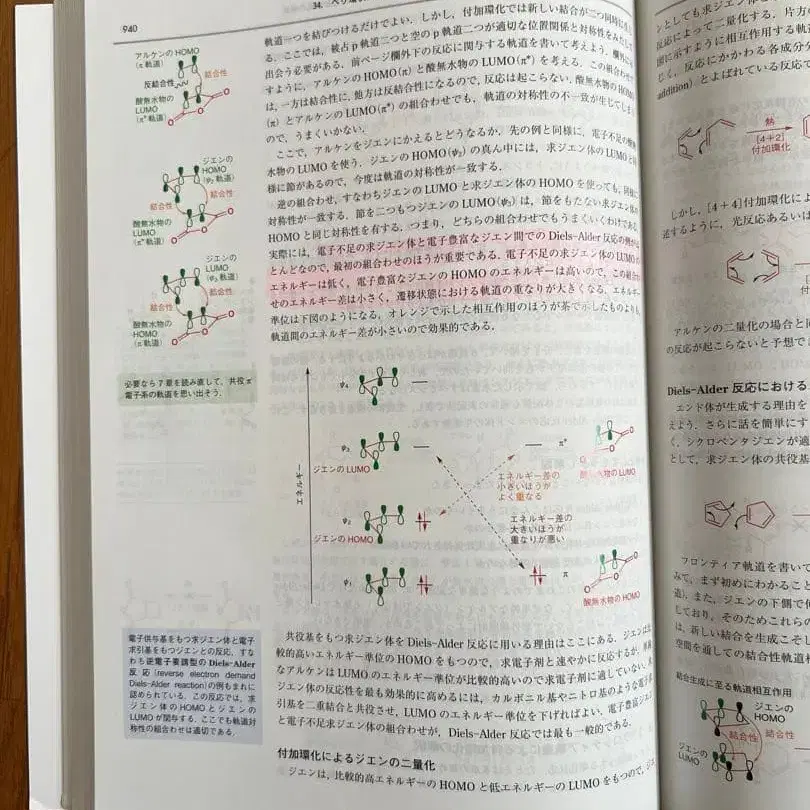 940
34. ペリ環
軌道一つを結びつけるだけでよい. しかし, 付加環化では新しい結合が二つ同時に
る. ここでは, 被占p軌道二つと空のp軌道二つが適切な位置関係と対称性を
出会う必要がある. 前ページ欄外下の反応に関与する軌道を書いて考えよう.
すように, アルケンのHOMO(π)と酸無水物のLUMO(π*)を考える. この組合わせで
は, 一方は結合性に, 他方は反結合性になるので, 反応は起こらない. 酸無水物のHOMO
(π)とアルケンのLUMO(π*)の組合わせでも, 軌道の対称性の不一致が生じてしま
ので, うまくいかない.
ここで, アルケンをジエンにかえるとどうなるか. 先の例と同様に, 電子不足の
水物のLUMOを使う. ジエンのHOMO(ψ₂)の真ん中には, 求ジエン体のLUMOと
様に節があるので, 今度は軌道の対称性が一致する.
逆の組合わせ, すなわちジエンのLUMOと求ジエン体のHOMOを使っても, 同様に
対称性が一致する. 節を二つもつジエンのLUMO(ψ₃)は, 節をもたない求ジエン体の
HOMOと同じ対称性を有する. つまり, どちらの組合わせでもうまくいくわけである.
実際には, 電子不足の求ジエン体と電子豊富なジエン間でのDiels–Alder反応の例が
とんどなので, 最初の組合わせのほうが重要である. 電子不足の求ジエン体のLUMOの
エネルギーは低く, 電子豊富なジエンのHOMOのエネルギーは高いので, この組合わ
せのエネルギー差は小さく, 遷移状態における軌道の重なりが大きくなる. エネルギー
準位は下図のようになる. オレンジで示した相互作用のほうが茶で示したものよりも,
軌道間のエネルギー差が小さいので効果的である.
アルケンのHOMO
(π軌道)
結合性
反結合性
酸無水物の
LUMO
(π*軌道)
ジエンの
HOMO
(ψ₂軌道)
結合性
結合性
酸無水物の
LUMO
(π*軌道)
ジエンの
LUMO
(ψ₃軌道)
結合性
結合性
酸無水物の
HOMO
(π軌道)
必要なら7章を読み直して, 共役π
電子系の軌道を思い出そう.
エネルギー
ψ₄
ψ₃
ジエンのLUMO
π*
酸無水物のLUMO
エネルギー差の
小さいほうが
よく重なる
ψ₂
ジエンのHOMO
エネルギー差の
大きいほうが
重なりが悪い
ψ₁
π
酸無水物のHOMO
電子供与基をもつ求ジエン体と電子
求引基をもつジエンとの反応, すな
わち逆電子要請型のDiels–Alder
反応(reverse electron demand
Diels–Alder reaction)の例もまれに
認められている. この反応では, 求
ジエン体のHOMOとジエンの
LUMOが関与する. ここでも軌道対
称性の組合わせは適切である.
共役基をもつ求ジエン体をDiels–Alder反応に用いる理由はここにある. ジエンは
較的高いエネルギー準位のHOMOをもつので, 求電子剤と速やかに反応するが,
なアルケンはLUMOのエネルギー準位が比較的高いので求電子剤に適していない.
ジエン体の反応性を最も効果的に高めるには, カルボニル基やニトロ基のような電子
引基を二重結合と共役させ, LUMOのエネルギー準位を下げればよい. 電子豊富ジエン
と電子不足求ジエン体の組合わせが, Diels–Alder反応では最も一般的である.
付加環化によるジエンの二量化
ジエンは, 比較的高エネルギーのHOMOと低エネルギーのLUMOをもつので, ジエ
ンとしても求ジエン体と
反応によって二量化する. 片方の
図に示すように相互作用する軌道
じく, 反応にかかわる各成分
addition)とよばれている反応で
熱
[4+2]
付加環化
しかし, [4+4]付加環化によ
述するように, 光反応あるいは
アルケンの二量化の場合と同
の反応が起こらないと予想でき
Diels–Alder反応における
エンド体が生成する理由を
えよう. さらに話を簡単にす
く, シクロペンタジエンが適
として, 求ジエン体の共役基
フロンティア軌道を書いて
みて, まず初めにわかること
道). また, ジエンの下側で
しており, そのためこれらの
は, 新しい結合を生成こそし
空間を通しての結合性軌道相
結合生成に至る軌道相互作用
ジエンの
HOMO
結合性
結合性
ジエンの
LUMO